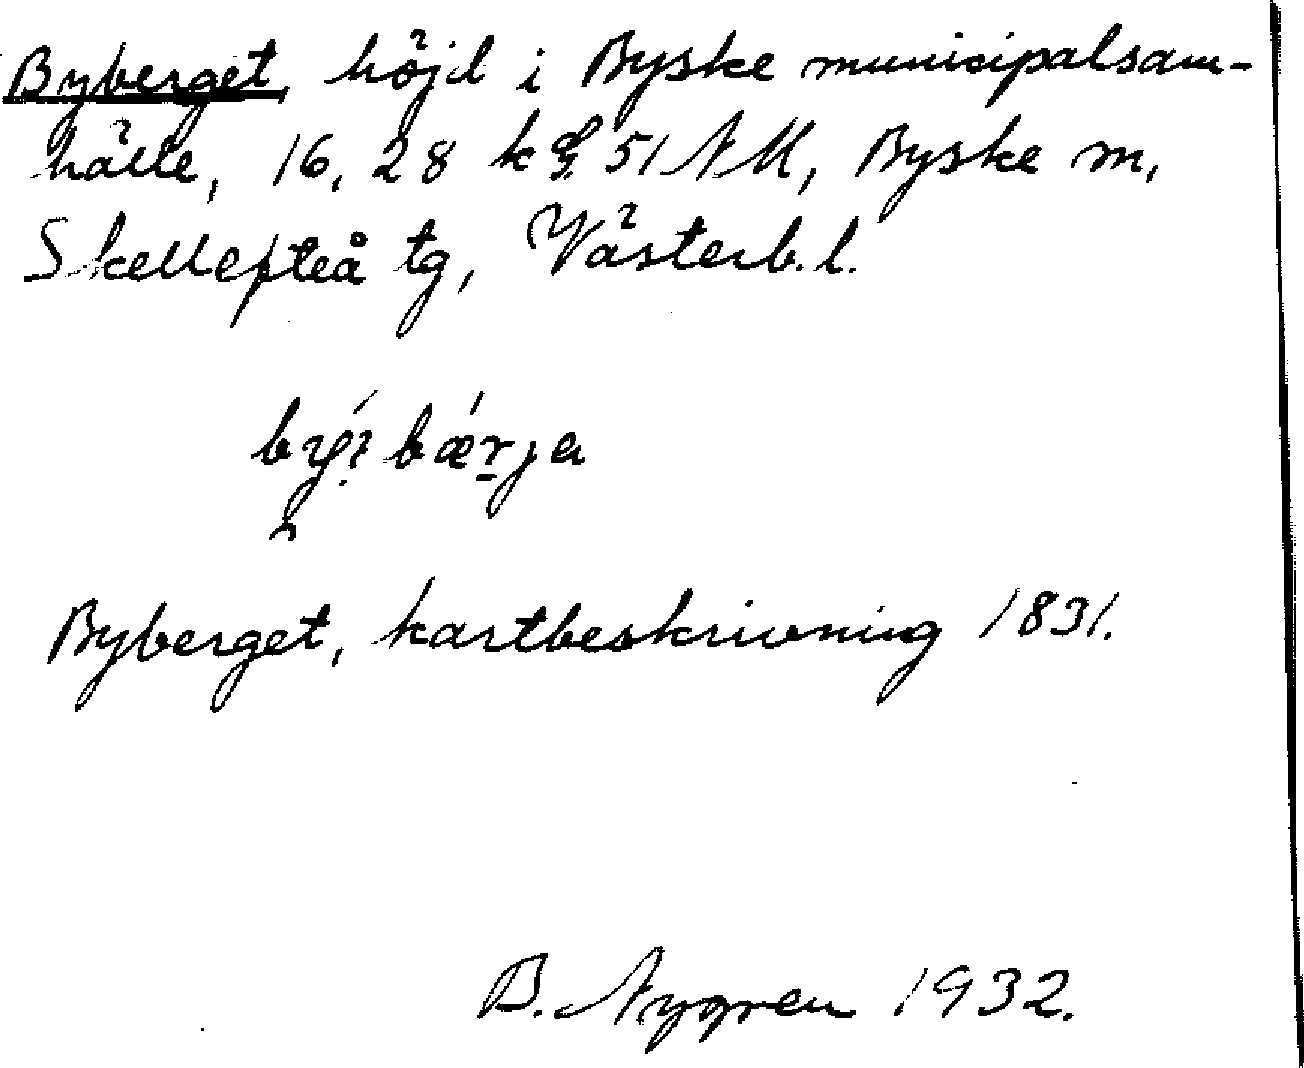 Byberget, höjd i Byske municipalsam-
hälle, 16, 28 k 51 NM, Byske m,
Skellefteå tg, Västerb. l.
Byberget, kartbeskrivning 1831.
B. Nygren 1932.